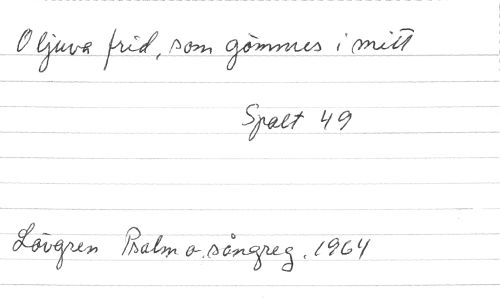 O ljuva frid, som gömmes i mitt
Spalt 49
Lövgren Psalm o. sångreg. 1964